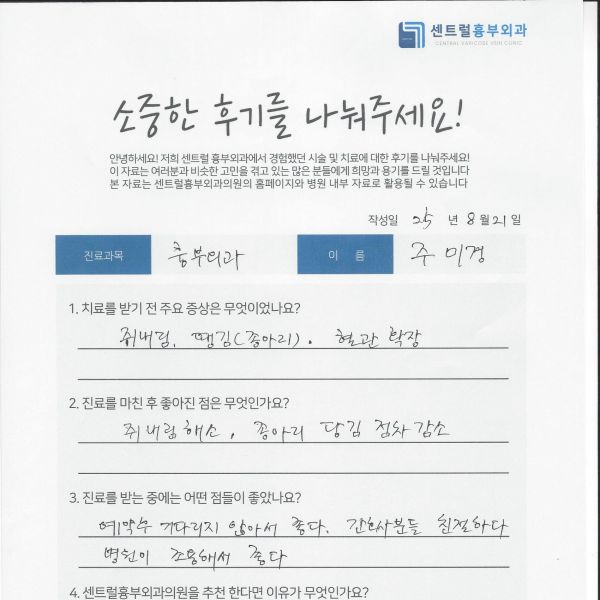 센트럴흉부외과
CENTRAL VARICOSE VEIN CLINIC
소중한 후기를 나눠주세요!
안녕하세요! 저희 센트럴 흉부외과에서 경험했던 시술 및 치료에 대한 후기를 나눠주세요!
이 자료는 여러분과 비슷한 고민을 겪고 있는 많은 분들에게 희망과 용기를 드릴 것입니다
본 자료는 센트럴흉부외과의원의 홈페이지와 병원 내부 자료로 활용될 수 있습니다
작성일 25 년 8 월 21 일
진료과목 흉부외과 이 름 주미경
1. 치료를 받기 전 주요 증상은 무엇이었나요?
쥐내림, 땡김(종아리). 혈관 확장
2. 진료를 마친 후 좋아진 점은 무엇인가요?
쥐내림해소, 종아리 당김 점차감소
3. 진료를 받는 중에는 어떤 점들이 좋았나요?
예약후 기다리지 않아서 좋다. 간호사분들 친절하다
병원이 조용해서 좋다
4. 센트럴흉부외과의원을 추천 한다면 이유가 무엇인가요?